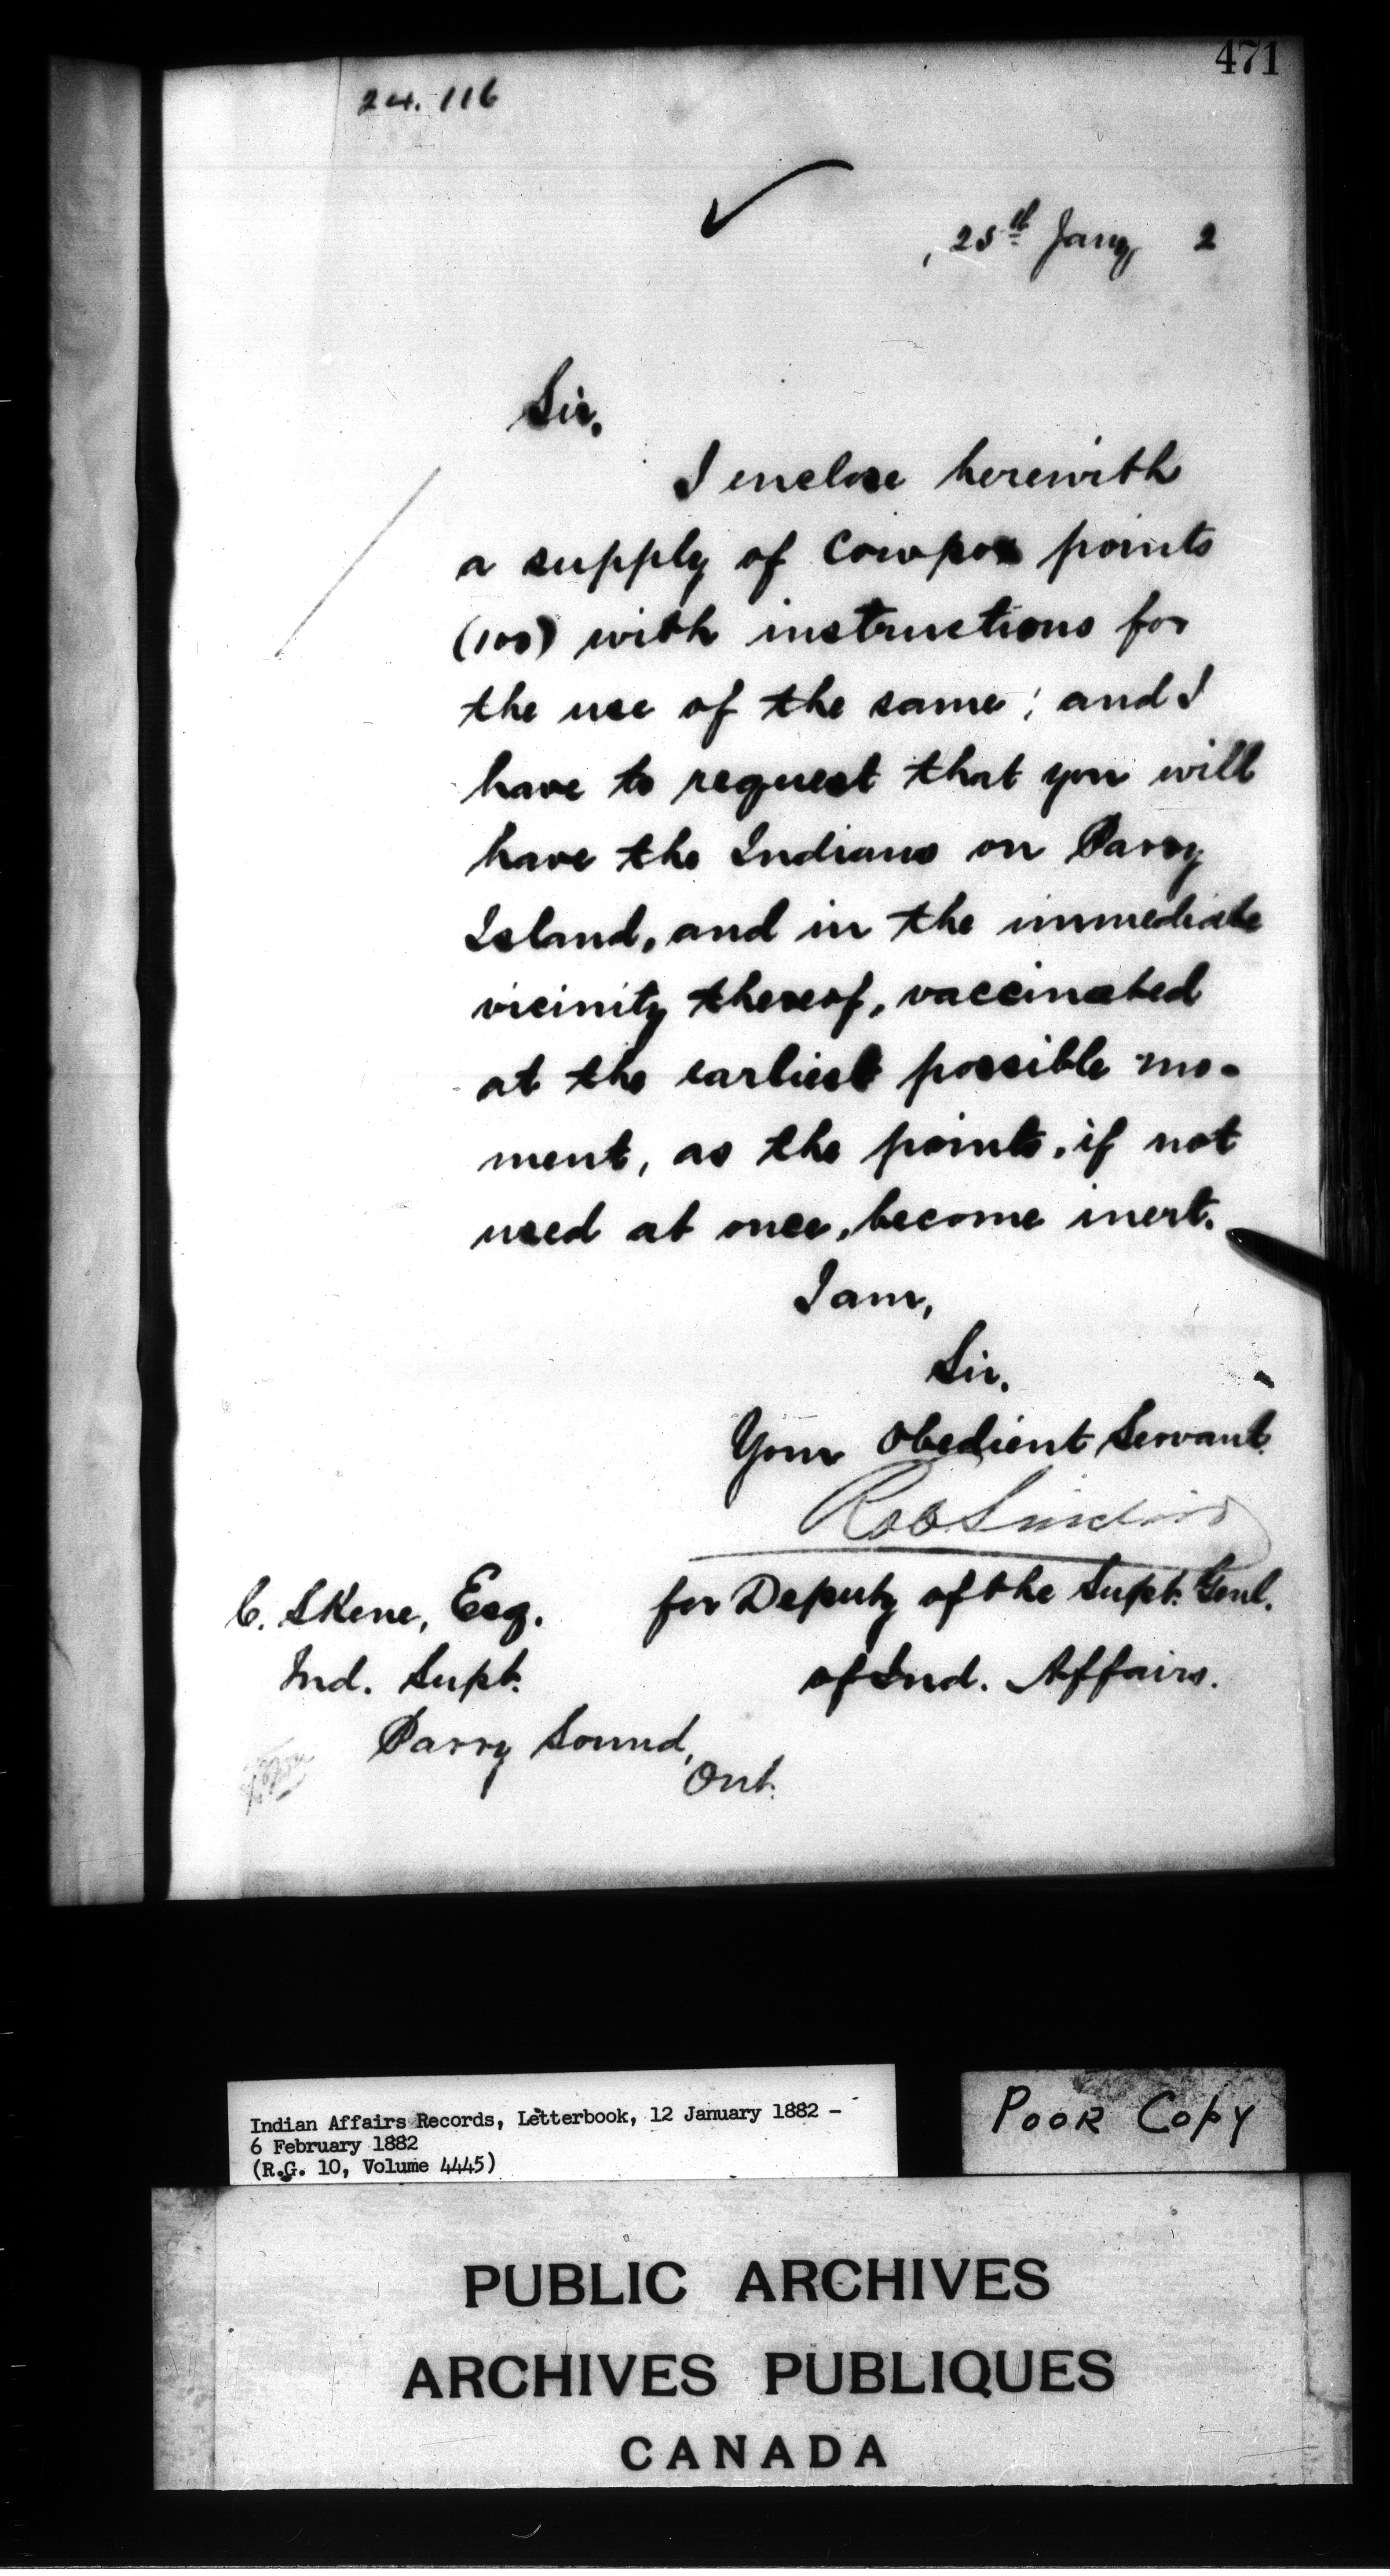 471
24.116
25th Jany, 2
Sir,
I enclose herewith
a supply of Cowpox points
(100) with instructions for
the use of the same; and I
have to request that you will
have the Indians on Parry
Island, and in the immediate
vicinity thereof, vaccinated
at the earliest possible mo-
ment, as the points, if not
used at once, become inert.
I am,
Sir,
Your Obedient Servant.
Rob Sinclair
for Deputy of the Supt. Genl.
of Ind. Affairs.
C. Skene, Esq.
Ind. Supt.
Parry Sound,
Ont.
Indian Affairs Records, Letterbook, 12 January 1882 -
6 February 1882
(R.G. 10, Volume 4445)
POOR COPY
PUBLIC ARCHIVES
ARCHIVES PUBLIQUES
CANADA